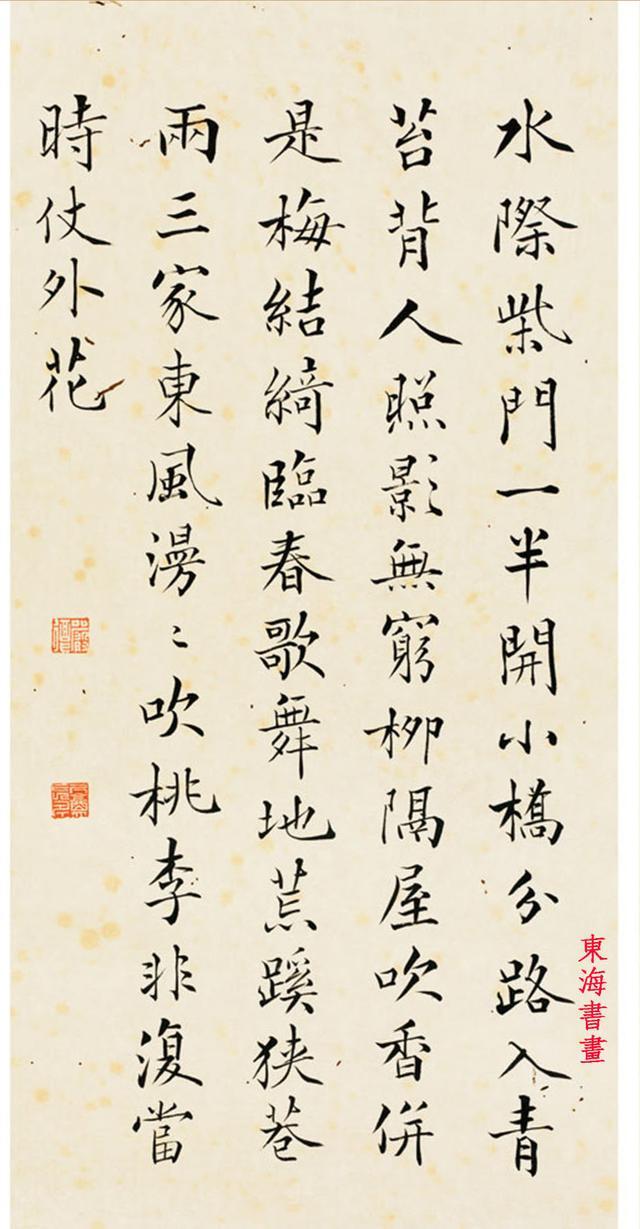 水際柴門一半開小橋分路入青
苔背人照影無窮柳隔屋吹香併
是梅結綺臨春歌舞地荒蹊狹巷
兩三家東風漫〻吹桃李非復當
時仗外花
東海書畫